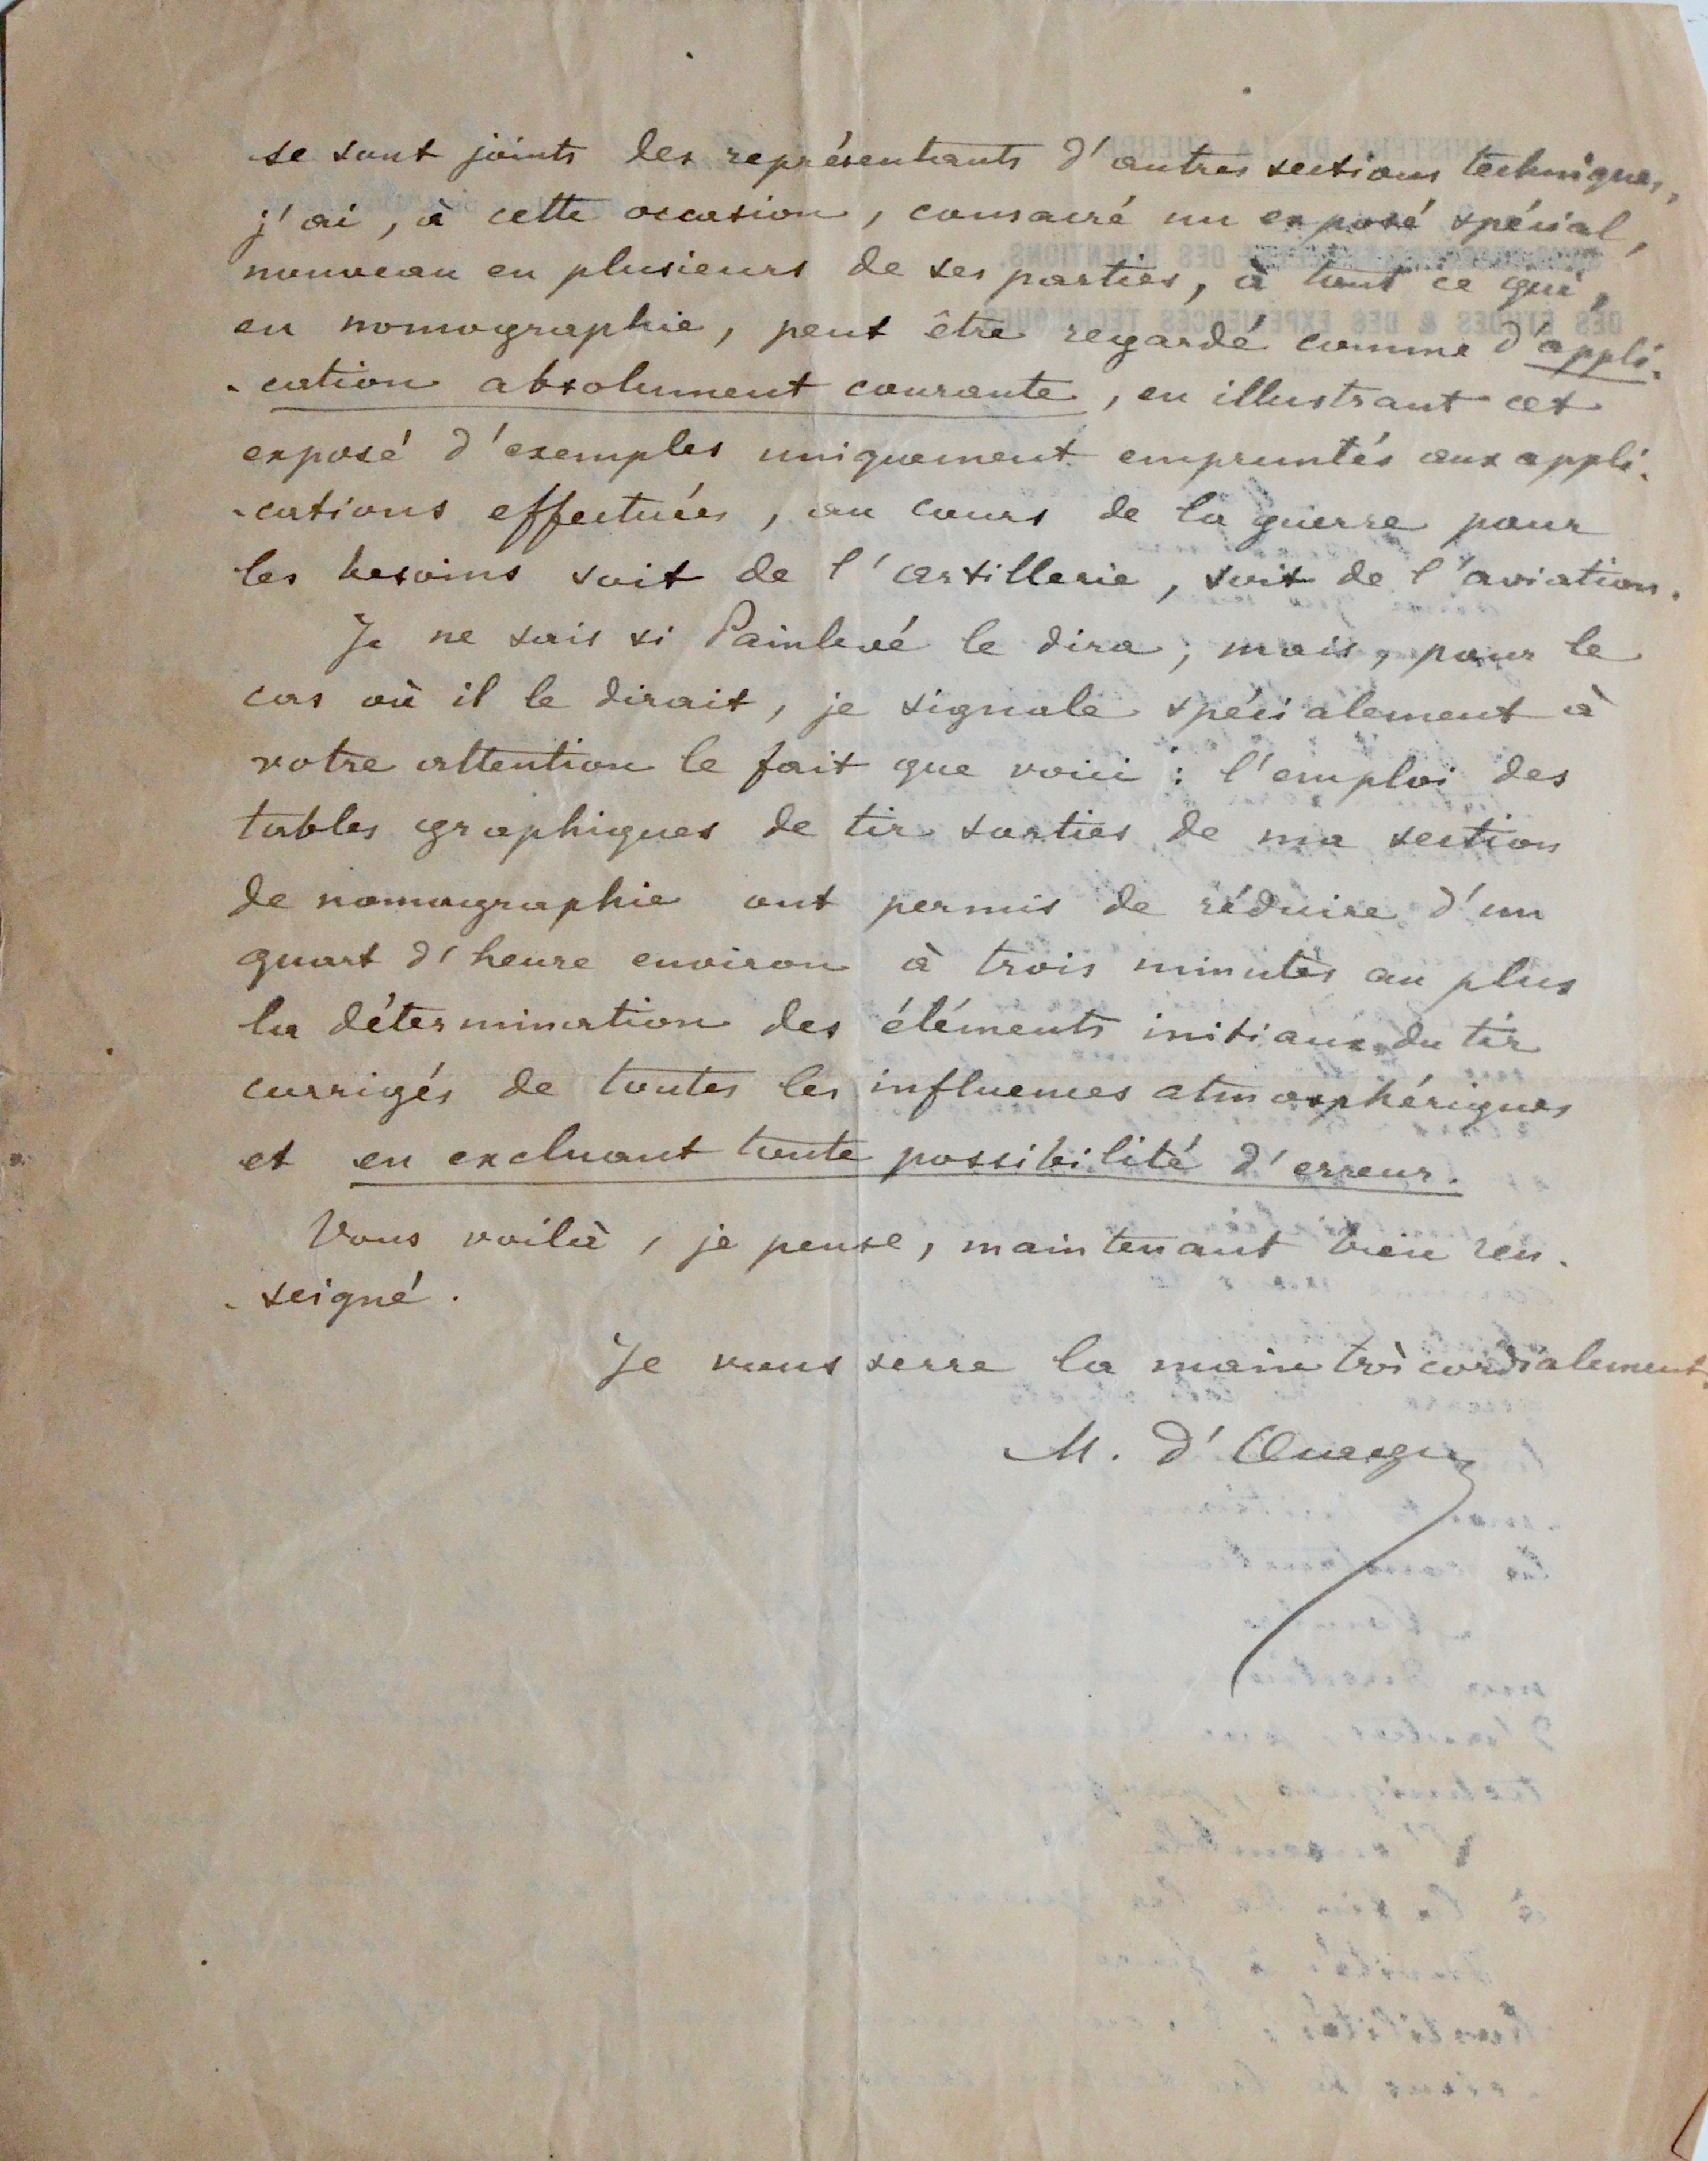 se sont joints des représentants d'autres sections techniques,
j'ai, à cette occasion, consacré un exposé spécial,
nouveau en plusieurs de ses parties, à tout ce qui,
en nomographie, peut être regardé comme d'appli-
-cation absolument courante, en illustrant cet
exposé d'exemples uniquement empruntés aux appli-
-cations effectuées, au cours de la guerre pour
les besoins soit de l'artillerie, soit de l'aviation.
Je ne sais si Painlevé le dira; mais, pour le
cas où il le dirait, je signale spécialement à
votre attention le fait que voici : l'emploi des
tables graphiques de tir sorties de ma section
de nomographie ont permis de réduire d'un
quart d'heure environ à trois minutes au plus
la détermination des éléments initiaux du tir
corrigés de toutes les influences atmosphériques
et en excluant toute possibilité d'erreur.
Vous voilà, je pense, maintenant bien ren-
-seigné.
Je vous serre la main très cordialement.
M. d'Ocagne